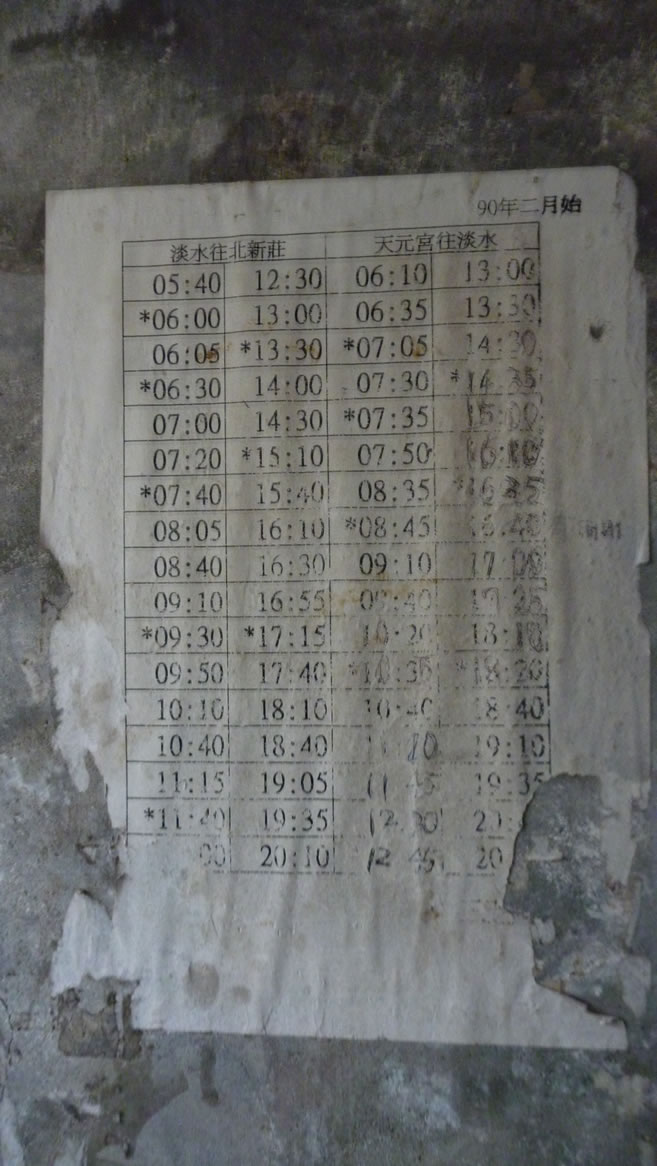 90年二月始
淡水往北新莊 天元宮往淡水
05:40 12:30 06:10 13:00
*06:00 13:00 06:35 13:30
06:05 *13:30 *07:05 14:30
*06:30 14:00 07:30 *14:35
07:00 14:30 *07:35 15:00
07:20 *15:10 07:50 16:10
*07:40 15:40 08:35
08:05 16:10 *08:45 16:40
08:40 16:30 09:10 17:00
09:10 16:55 09:40
*09:30 *17:15 10:20 18:10
09:50 17:40 *10:35 *18:20
10:10 18:10 10:40 18:40
10:40 18:40 19:10
11:15 19:05 19:35
*11:40 19:35
00 20:10 12 45 20